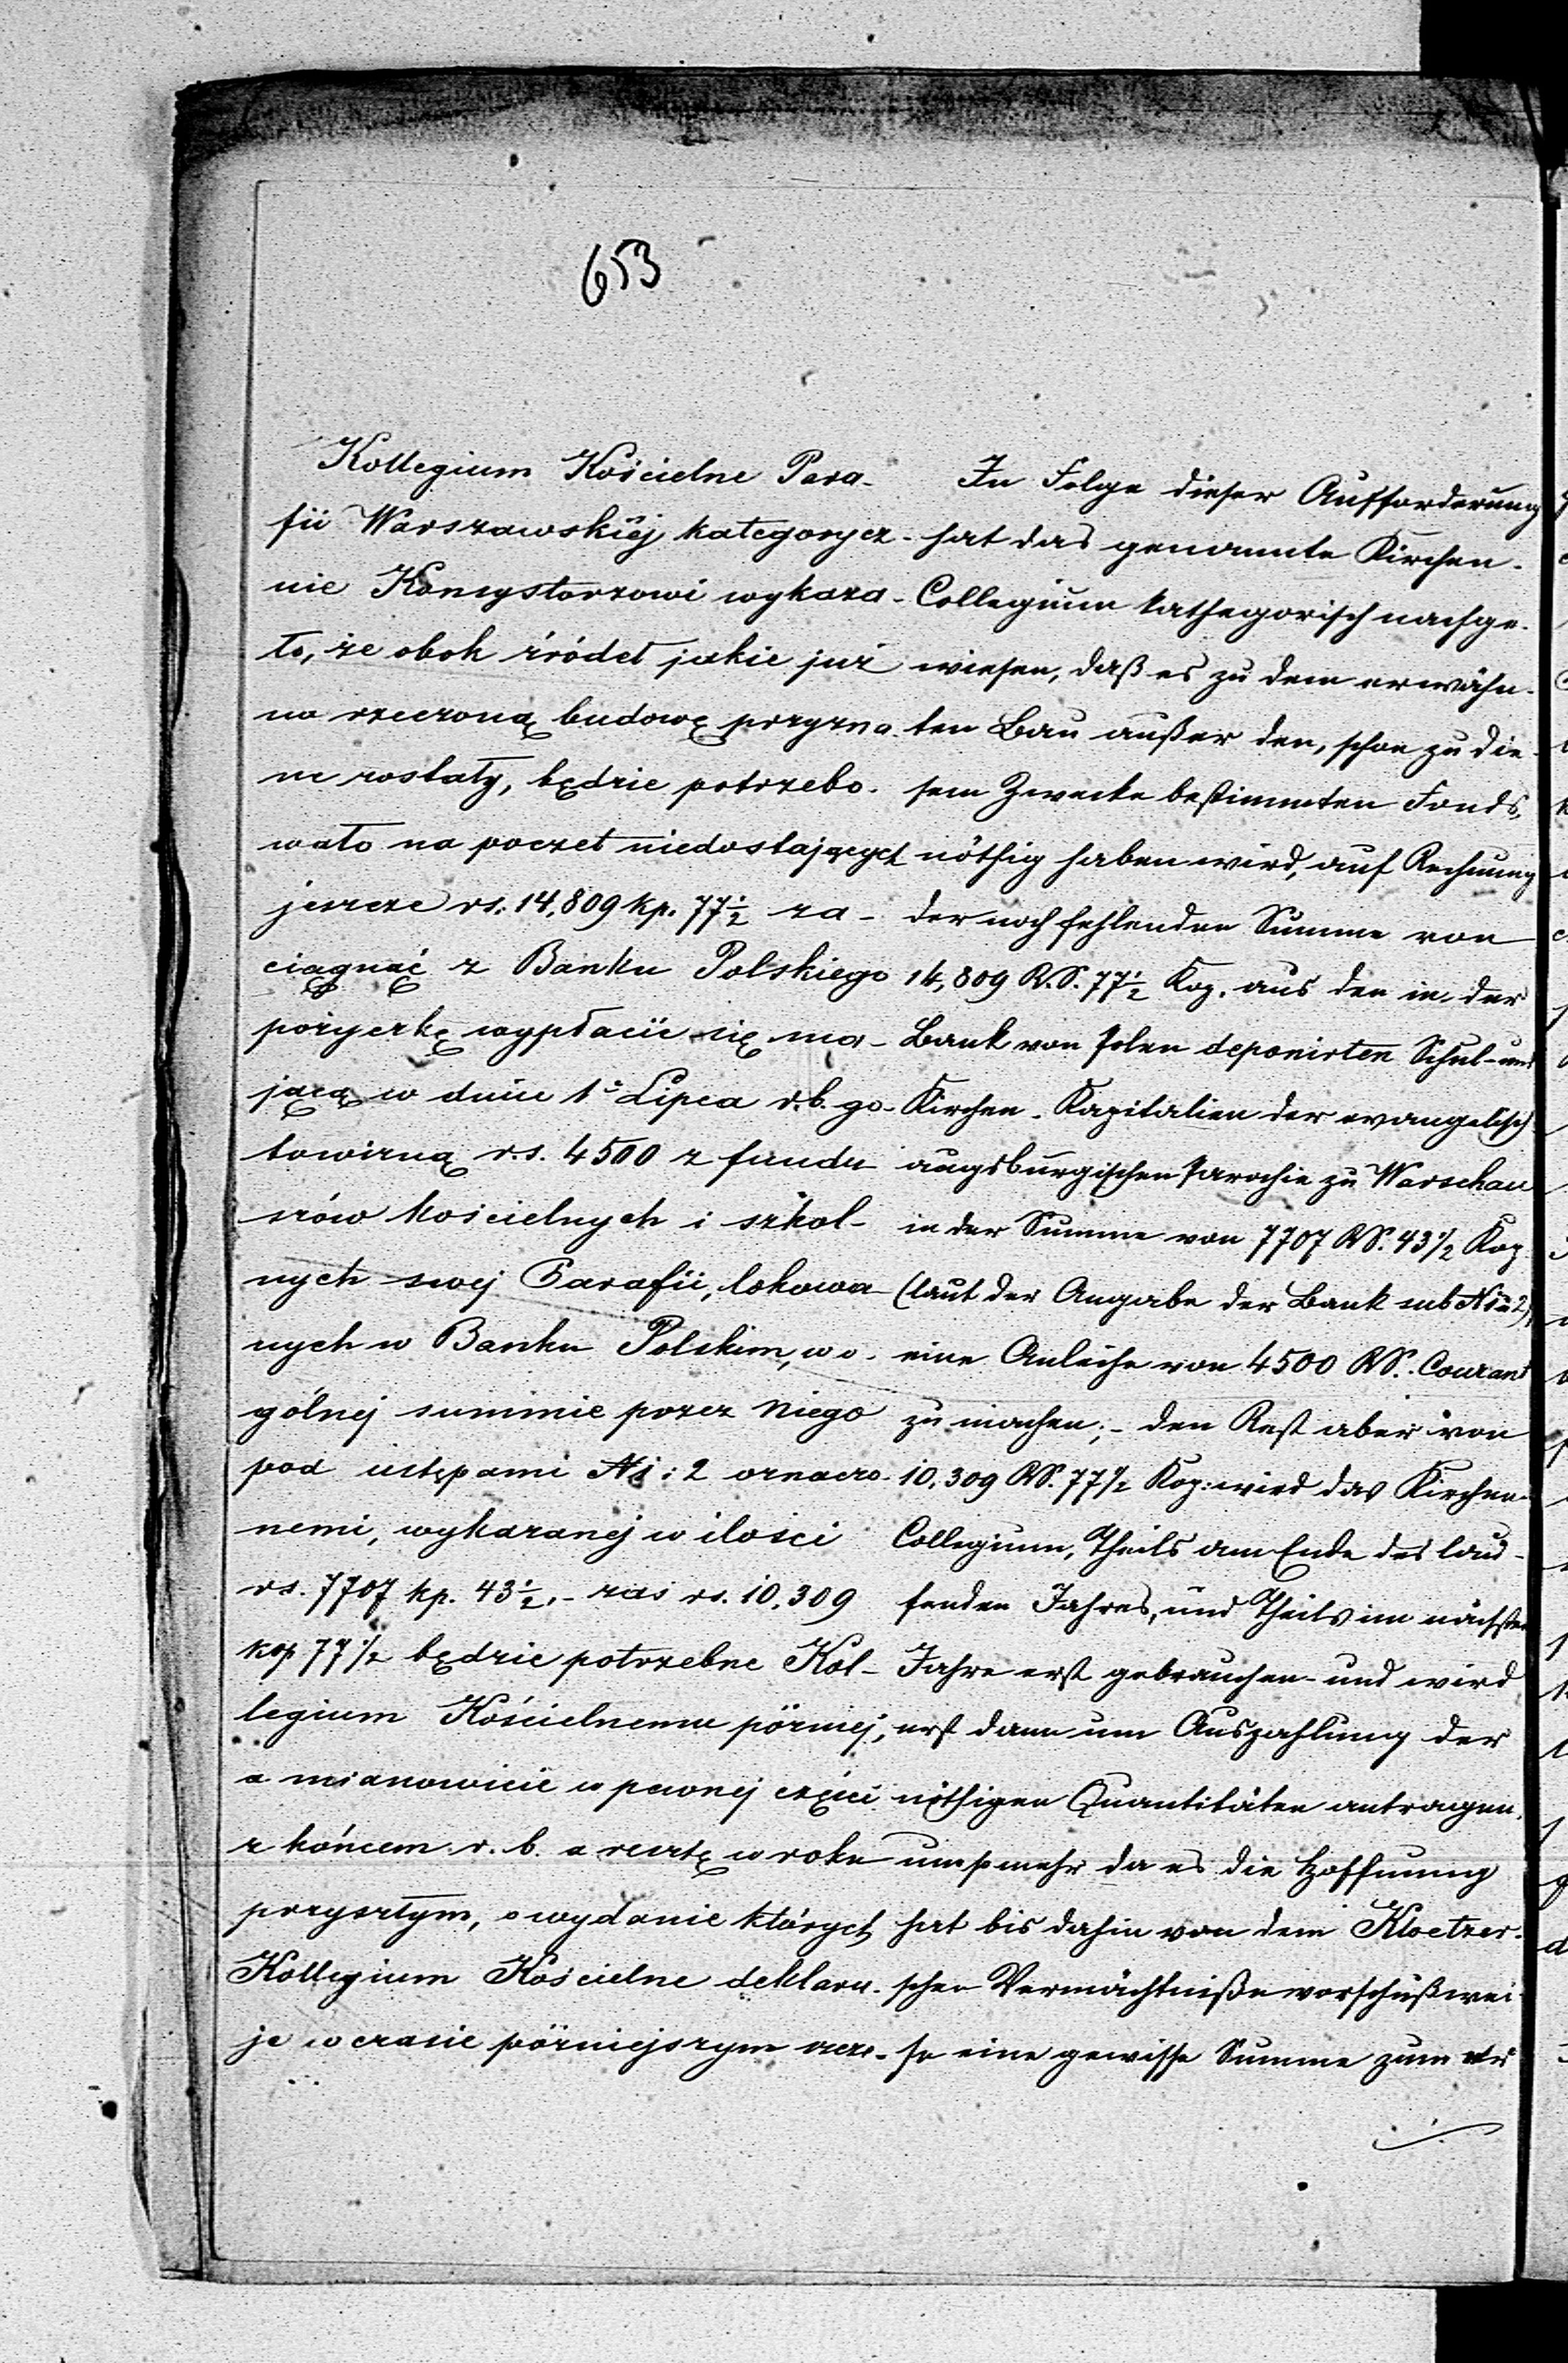 653
Kollegium Kościelne Para-
fii Warszawskiej kategorycz-
nie Konsystorzowi wykaza-
ło, że obok źródeł jakie już
na rzeczoną budowę przyzna-
ne zostały, będzie potrzebo-
wało na poczet niedostających
jeszcze rs. 14,809 kp. 77½ za-
ciągnąć z Banku Polskiego
pożyczkę wypłacić się ma-
jącą w dniu 1º Lipca r. b. go-
towizną r.s. 4500 z fundu-
szów kościelnych i szkol-
nych swej Parafii, lokowa-
nych w Banku Polskim, w o-
gólnej summie przez niego
pod ustępami № 1: 2 oznaczo-
nemi, wykazanej w ilości
rs. 7707 kp. 43½,- zaś rs. 10,309
kop 77½ będzie potrzebne Kol-
legium Kościelnemu późniéj,
a mianowicie w pewnej części
z końcem r. b. a resztę w roku
przyszłym, o wydanie których
Kollegium Kościelne deklaru-
je w czasie późniejszym
In Folge dieser Aufforderung
hat das genannte Kirchen-
Collegium kathegorisch nachge-
wiesen, daß es zu dem erwähn-
ten Bau außer den, schon zu die-
sem Zwecke bestimmten Fonds,
nöthig haben wird, auf Rechnung
der noch fehlenden Summe von
14,809 R.S. 77½ Kop. aus den in der
Bank von Polen deponirten Schul- und
Kirchen-Kapitalien der evangelisch
augsburgischen Parochie zu Warschau
in der Summe von 7707 RS. 43½ Kop
(laut der Angabe der Bank sub № 1 u 2)
eine Anleihe von 4500 RS. Courant
zu machen;- den Rest aber von
10,309 RS. 77½ Kop: wird das Kirchen-
Collegium, Theils am Ende des lau-
fenden Jahres, und Theils im nächsten
Jahre erst gebrauchen- und wird
erst dann um Auszahlung der
nöthigen Quantitäten antragen,
um so mehr da es die Hoffnung
hat bis dahin von dem Kloetzer-
schen Vermächtniße vorschußwei-
se eine gewisse Summe zum